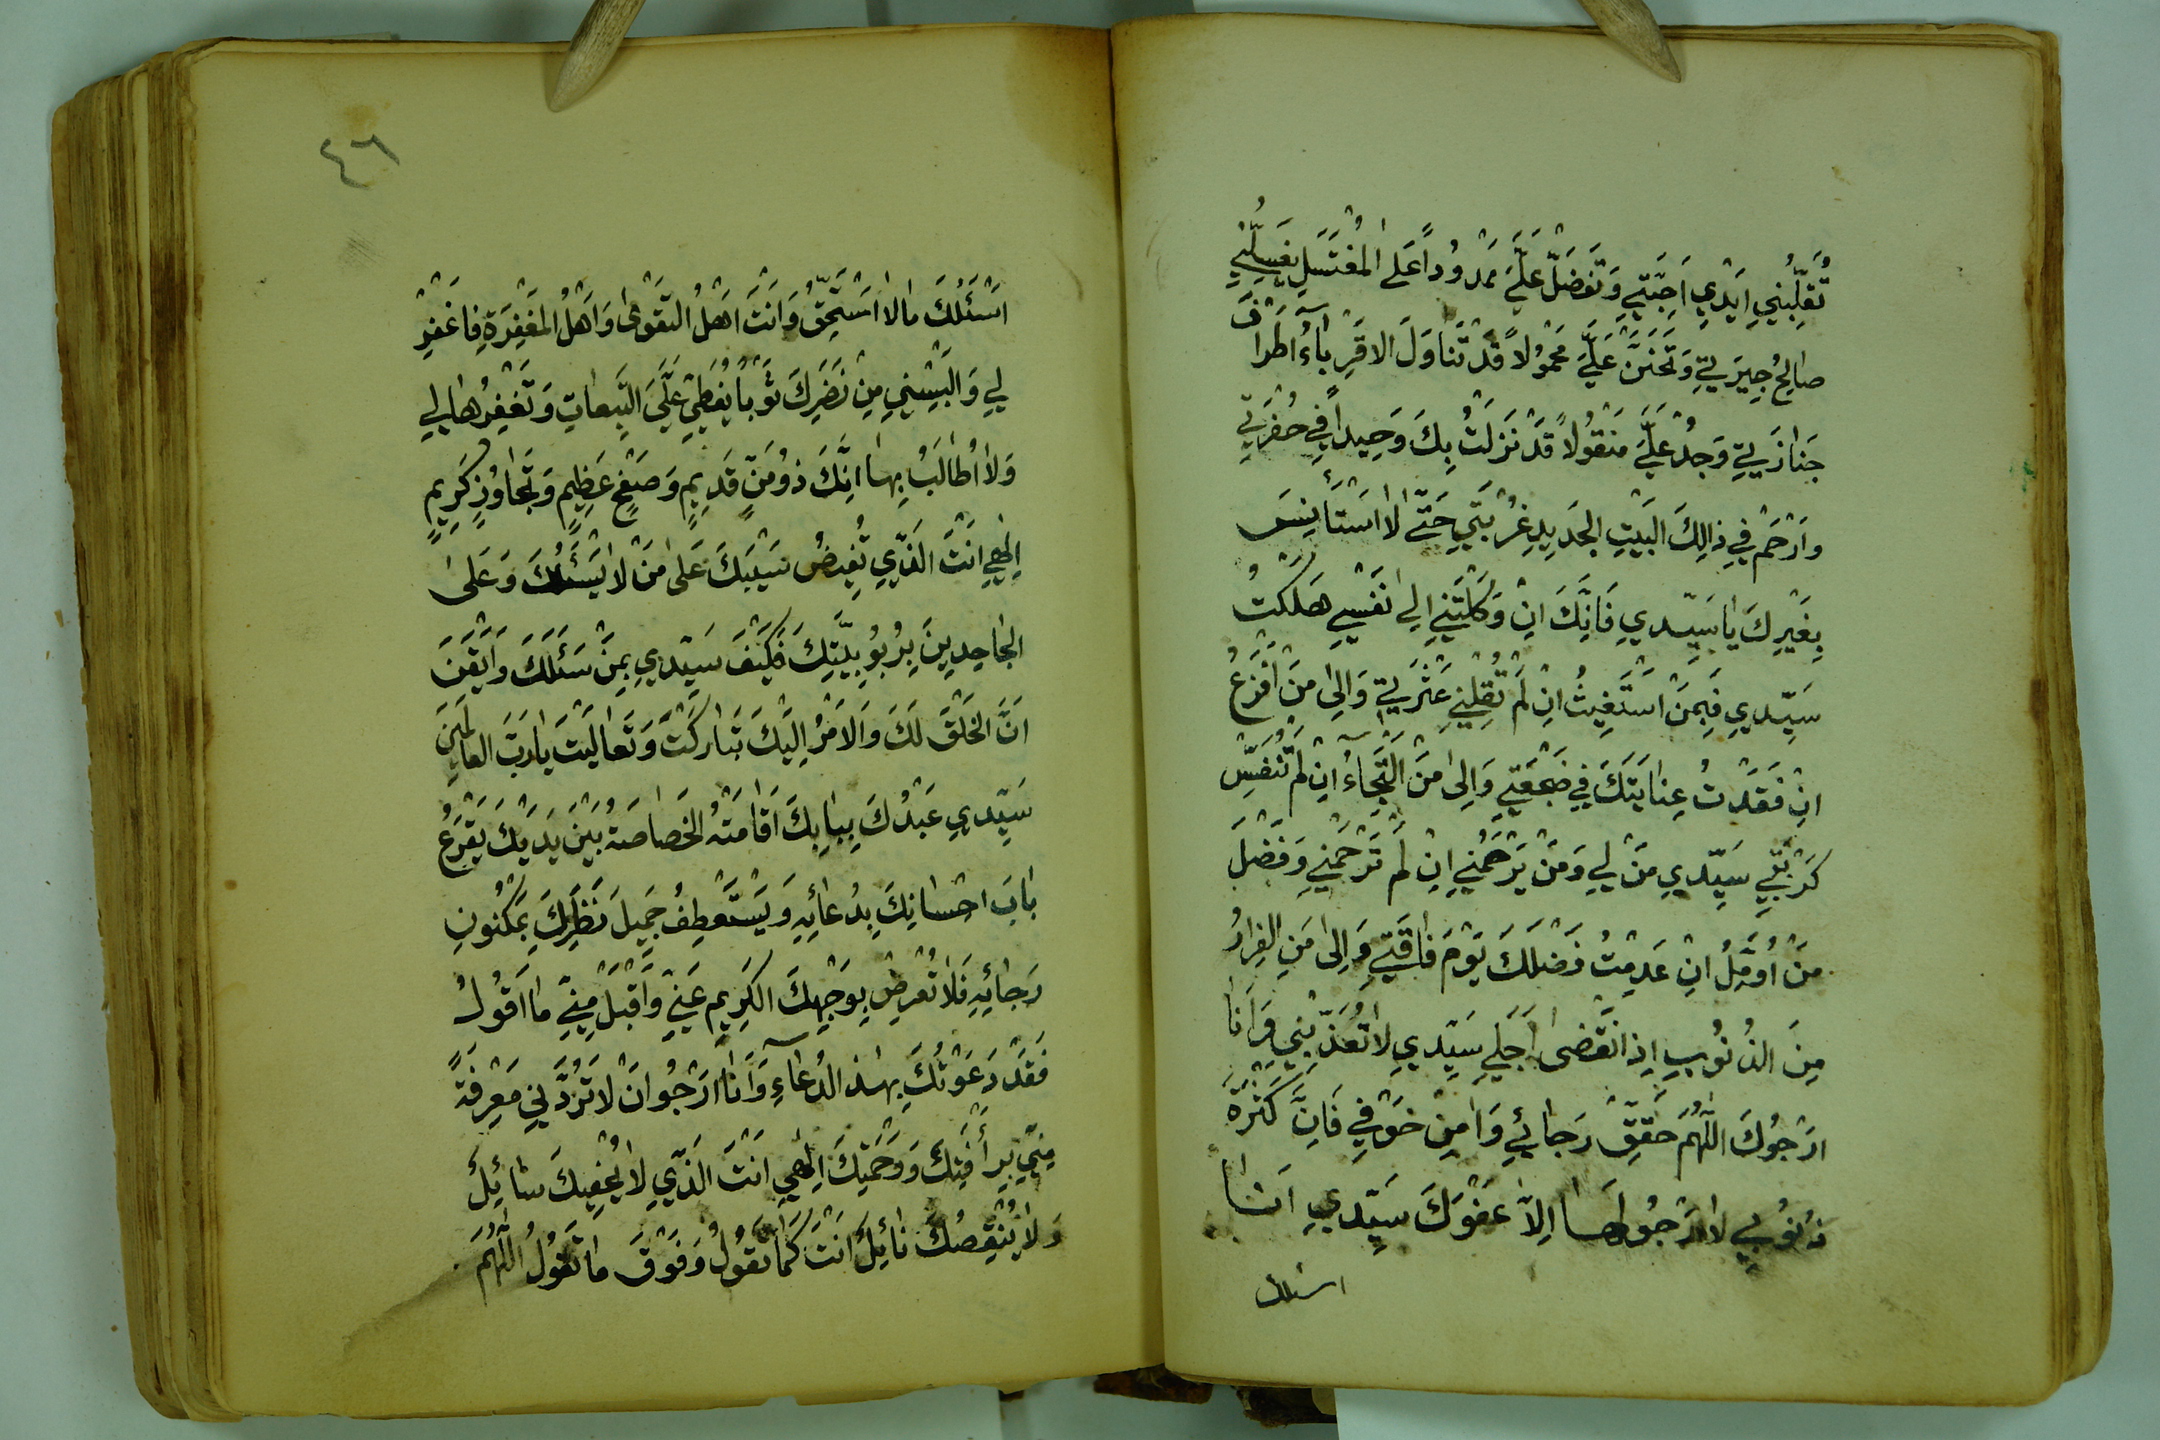 تُقَلِّبُنِي اَيْدِي اَحِبَّتِي وَتَفَضَّلْ عَلَيَّ مَمْدُوداً عَلَى الْمُغْتَسَلِ يُغَسِّلُنِي
صالِحُ جِيرَتِي وَتَحَنَّنْ عَلَيَّ مَحْمُولاً قَدْ تَناوَلَ الاَقْرِبآءُ اَطْرافَ
جَنازَتِي وَجُدْ عَلَيَّ مَنْقُولاً قَدْ نَزَلْتُ بِكَ وَحِيداً فِي حُفْرَتِي
وَارْحَمْ فِي ذلِكَ الْبَيْتِ الْجَدِيدِ غُرْبَتِي حَتّى لا اَسْتَأْنِسَ
بِغَيْرِكَ يا سَيِّدِي فَاِنَّكَ اِنْ وَكَلْتَنِي اِلى نَفْسِي هَلَكْتُ
سَيِّدِي فَبِمَنْ اَسْتَغِيثُ اِنْ لَمْ تُقِلْنِي عَثْرَتِي وَاِلى مَنْ اَفْزَعُ
اِنْ فَقَدْتُ عِنايَتَكَ فِي ضَجْعَتِي وَاِلى مَنْ اَلْتَجِاءُ اِنْ لَمْ تُنَفِّسْ
كُرْبَتِي سَيِّدِي مَنْ لِي وَمَنْ يَرْحَمُنِي اِنْ لَمْ تَرْحَمْنِي وَفَضْلَ
مَنْ اُؤَمِّلُ اِنْ عَدِمْتُ فَضْلَكَ يَوْمَ فاقَتِي وَاِلى مَنِ الْفِرارُ
مِنَ الذُّنُوبِ اِذا انْقَضى اَجَلِي سَيِّدِي لا تُعَذِّبْنِي وَاَنَا
اَرْجُوكَ اَللّهُمَّ حَقِّقْ رَجائِي وَامِنْ خَوْفِي فَاِنَّ كَثْرَةَ
ذُنُوبِي لا اَرْجُو لَها اِلاّ عَفْوَكَ سَيِّدِي اَنَا
اسئلك
٤٦
اَسْئَلُكَ ما لا اَسْتَحِقُّ وَاَنْتَ اَهْلُ التَّقْوى وَاَهْلُ الْمَغْفِرَةِ فَاغْفِرْ
لِي وَاَلْبِسْنِي مِنْ نَضَرِكَ ثَوْباً يُغَطِّي عَلَيَّ التَّبِعاتِ وَتَغْفِرُها لِي
وَلا اُطالَبُ بِها اِنَّكَ ذُو مَنٍّ قَدِيمٍ وَصَفْحٍ عَظِيمٍ وَتَجاوُزٍ كَرِيمٍ
اِلهِي اَنْتَ الَّذِي تُفِيضُ سَيْبَكَ عَلى مَنْ لا يَسْئَلُكَ وَعَلى
الْجاحِدِينَ بِرُبُوبِيَّتِكَ فَكَيْفَ سَيِّدِي بِمَنْ سَئَلَكَ وَاَيْقَنَ
اَنَّ الْخَلْقَ لَكَ وَالاَمْرُ اِلَيْكَ تَبارَكْتَ وَتَعالَيْتَ يا رَبَّ الْعالَمِينَ
سَيِّدِي عَبْدُكَ بِبابِكَ اَقامَتْهُ الْخَصاصَةُ بَيْنَ يَدَيْكَ يَقْرَعُ
بابَ اِحْسانِكَ بِدُعائِهِ وَيَسْتَعْطِفُ جَمِيلَ نَظَرِكَ بِمَكْنُونِ
رَجائِهِ فَلا تُعْرِضْ بِوَجْهِكَ الْكَرِيمِ عَنِّي وَاقْبَلْ مِنِّي ما اَقُولُ
فَقَدْ دَعَوْتُكَ بِهذَا الدُّعآءِ وَاَنَا اَرْجُو اَنْ لا تَرُدَّنِي مَعْرِفَةً
مِنِّي بِرَأْفَتِكَ وَرَحْمَتِكَ اِلهِي اَنْتَ الَّذِي لا يُحْفِيكَ سائِلٌ
وَلا يَنْقُصُكَ نائِلٌ اَنْتَ كَما تَقُولُ وَفَوْقَ ما تَقُولُ اَللّهُمَّ